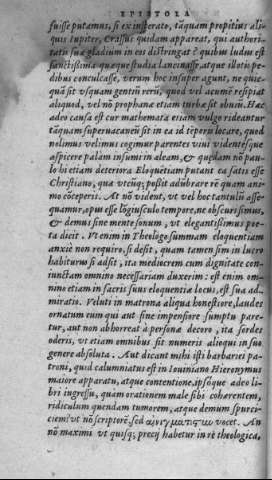 EPISTOLA
fuisse putamus, si ex insperato, tāquam propitius ali
quis Iupiter, Crassus quidam appareat, qui authori
tatis suæ gladium in eos distringat è quibus ludus est
sanctissima quæque studia lancinasse, atque illotis pe-
dibus conculcasse, verum hoc insuper agunt, ne quic-
quā sit vsquam gentiū rerū, quod vel acumē resipiat
aliquod, vel nō prophanæ etiam turbæ sit obuiū. Hac
adeo causa est cur mathemata etiam vulgo rideantur
tāquam superuacanea sint in ea id tēporis locare, quod
nolimus velimus cogimur parentes viui videntésque
aspicere palàm insumi in aleam, & quædam nō pau-
lo his etiam deteriora. Eloquētiam putant ea satis esse
Christiano, qua vtcūq; possit adūbrare rē quam ani-
mo cōceperit. At nō vident, vt vel hoc tantulū asse-
quamur, opus esse lōgiusculo tempore, ne obscurissimus,
& demus sine mente sonum, vt elegantissimus poë-
ta dicit. Vt enim in Theologo summam eloquentiam
anxiè non requiro, si desit, quam tamen sim in lucro
habiturus si adsit, ita mediocrem cum dignitate con-
iunctam omnino necessariam duxerim: est enim om-
nino etiam in sacris suus eloquentiæ locus, est sua ad-
miratio. Veluti in matrona aliqua honestiore, laudes
ornatum eum qui aut sine impensiore sumptu pare-
tur, aut non abhorreat à personæ decoro, ita sordes
oderis, vt etiam omnibus sit numeris alioqui in suo
genere absoluta. Aut dicant mihi isti barbariei pa-
troni, quid calumniatus est in Iouiniano Hieronymus
maiore apparatu, atque contentione, ipsóque adeo li-
bri ingressu, quàm orationem malè sibi cohærentem,
ridiculum quendam tumorem, atque demum spurci-
ciem? vt nō scriptorē, sed αἰνιγματιστὴν vocet. An
nō maximi vt quisq; precij habetur in rè theologica,